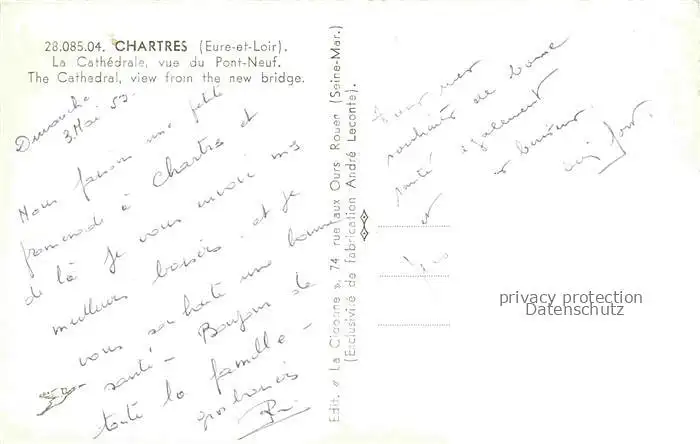 28.085.04. CHARTRES (Eure-et-Loir).
La Cathédrale, vue du Pont-Neuf.
The Cathedral, view from the new bridge.
Dimanche
3 Mai 53
Nous faisons une petite
promenade à Chartres et
de là je vous envoie mes
meilleurs baisers. et je
vous souhaite une bonne
santé - Bonjour de
toute la famille -
gros baisers
Edit. « La Cigogne », 74 rue aux Ours Rouen (Seine-Mar.)
(Exclusivité de fabrication André Leconte).
Tous mes
souhaits de bonne
santé également
et baisers
bien fort.
privacy protection
Datenschutz